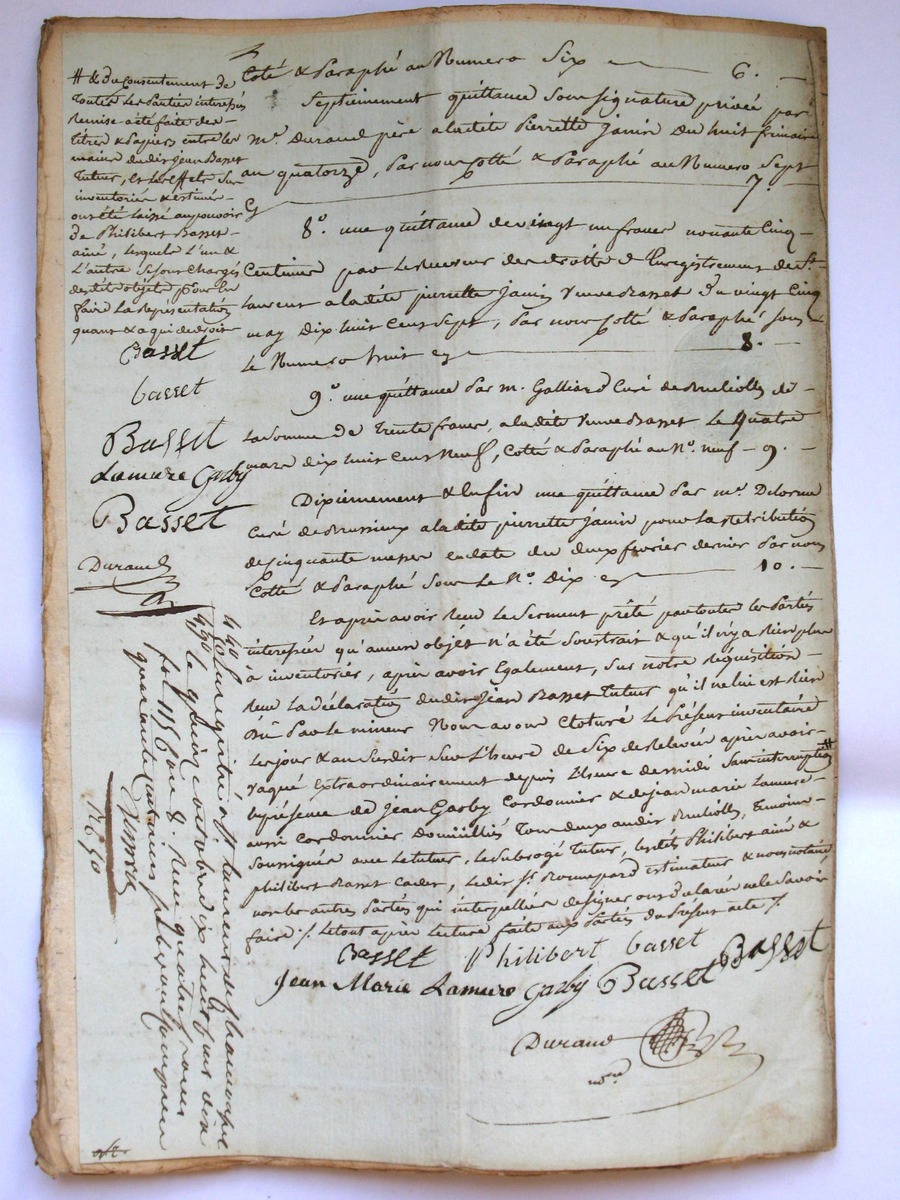 Coté & Paraphé au Numero Six 6.
Septiemement quittance sous signature privée par
Mr. Durand père à la dite Pierrette Janin du huit frimaire
an quatorze, Par nous Cotté & Paraphé au Numero Sept
7.
8°. une quittance de vingt un francs nonante Cinq
Centimes par le Receveur des droits d'Enregistrement de St.
Laurent a la dite pierrette Janin Veuve Basset du vingt Cinq
may Dix huit Cent Sept, Par nous Cotté & Paraphé sous
Le Numero huit 8.
9°. une quittance Par m. Galliard Curé de
La Somme de Trente francs, a la dite Veuve Basset Le Quatre
mars dix huit Cent Neuf, Cotté & Paraphé au No. neuf 9.
Dixiemement & Enfin une quittance Par mr. Delorme
Curé de Brussieux a la dite pierrette Janin pour La Retribution
de Cinquante messes en date du deux fevrier dernier Par nous
Cotté & Paraphé Sous Le No. Dix 10.
Et après avoir Reçu Le Serment prêté par toutes les Parties
interessées qu'aucun objet n'a été Soustrait & qu'il n'y a Rien plus
à inventorier, après avoir Egalement, Sur notre Réquisition
Reçu La déclaration du dit Jean Basset Tuteur qu'il ne lui est Rien
Dû Par le mineur Nous avons Cloturé Le Présent inventaire
Les jour & an Susdit Sur L'heure de Six de Relevée après avoir
vaqué Extraordinairement depuis L'heure de midi Sans interruption #
En présence de Jean Garby Cordonnier & de Jean marie Lamure
aussi Cordonnier Domiciliés Tous deux au dit Temoins
Soussignés avec Le tuteur, Le Subrogé Tuteur, Les dits Philibert ainé &
philibert Basset Cadet, Le dit Sr. estimateur & nous notaire
non les autres Parties qui interpellées de signer ont déclaré ne le Savoir
faire /. Le tout après Lecture faite aux Parties du Présent acte /.
Basset Philibert basset Basset
Jean Marie Lamure Garby Basset
Durand
nore
# & du Consentement de
Toutes Les Parties interessées
Remise a été faite des
titres & Papiers entre les
mains du dit Jean Basset
Tuteur, Et Les Effets Sus
inventoriés & estimés
ont été laissé au pouvoir
de Philibert Basset
ainé, Lesquels L'un &
L'autre Se sont Chargés
des dits objets Pour En
faire La Représentation
quant & a qui de droit
Basset
basset
Basset
Lamure Garby
Basset
Durand
Enregistré à St Laurent de Chamousset
le quinze octobre dix huit cent dix
fo. 115 Reçu quatre francs
quarante centimes